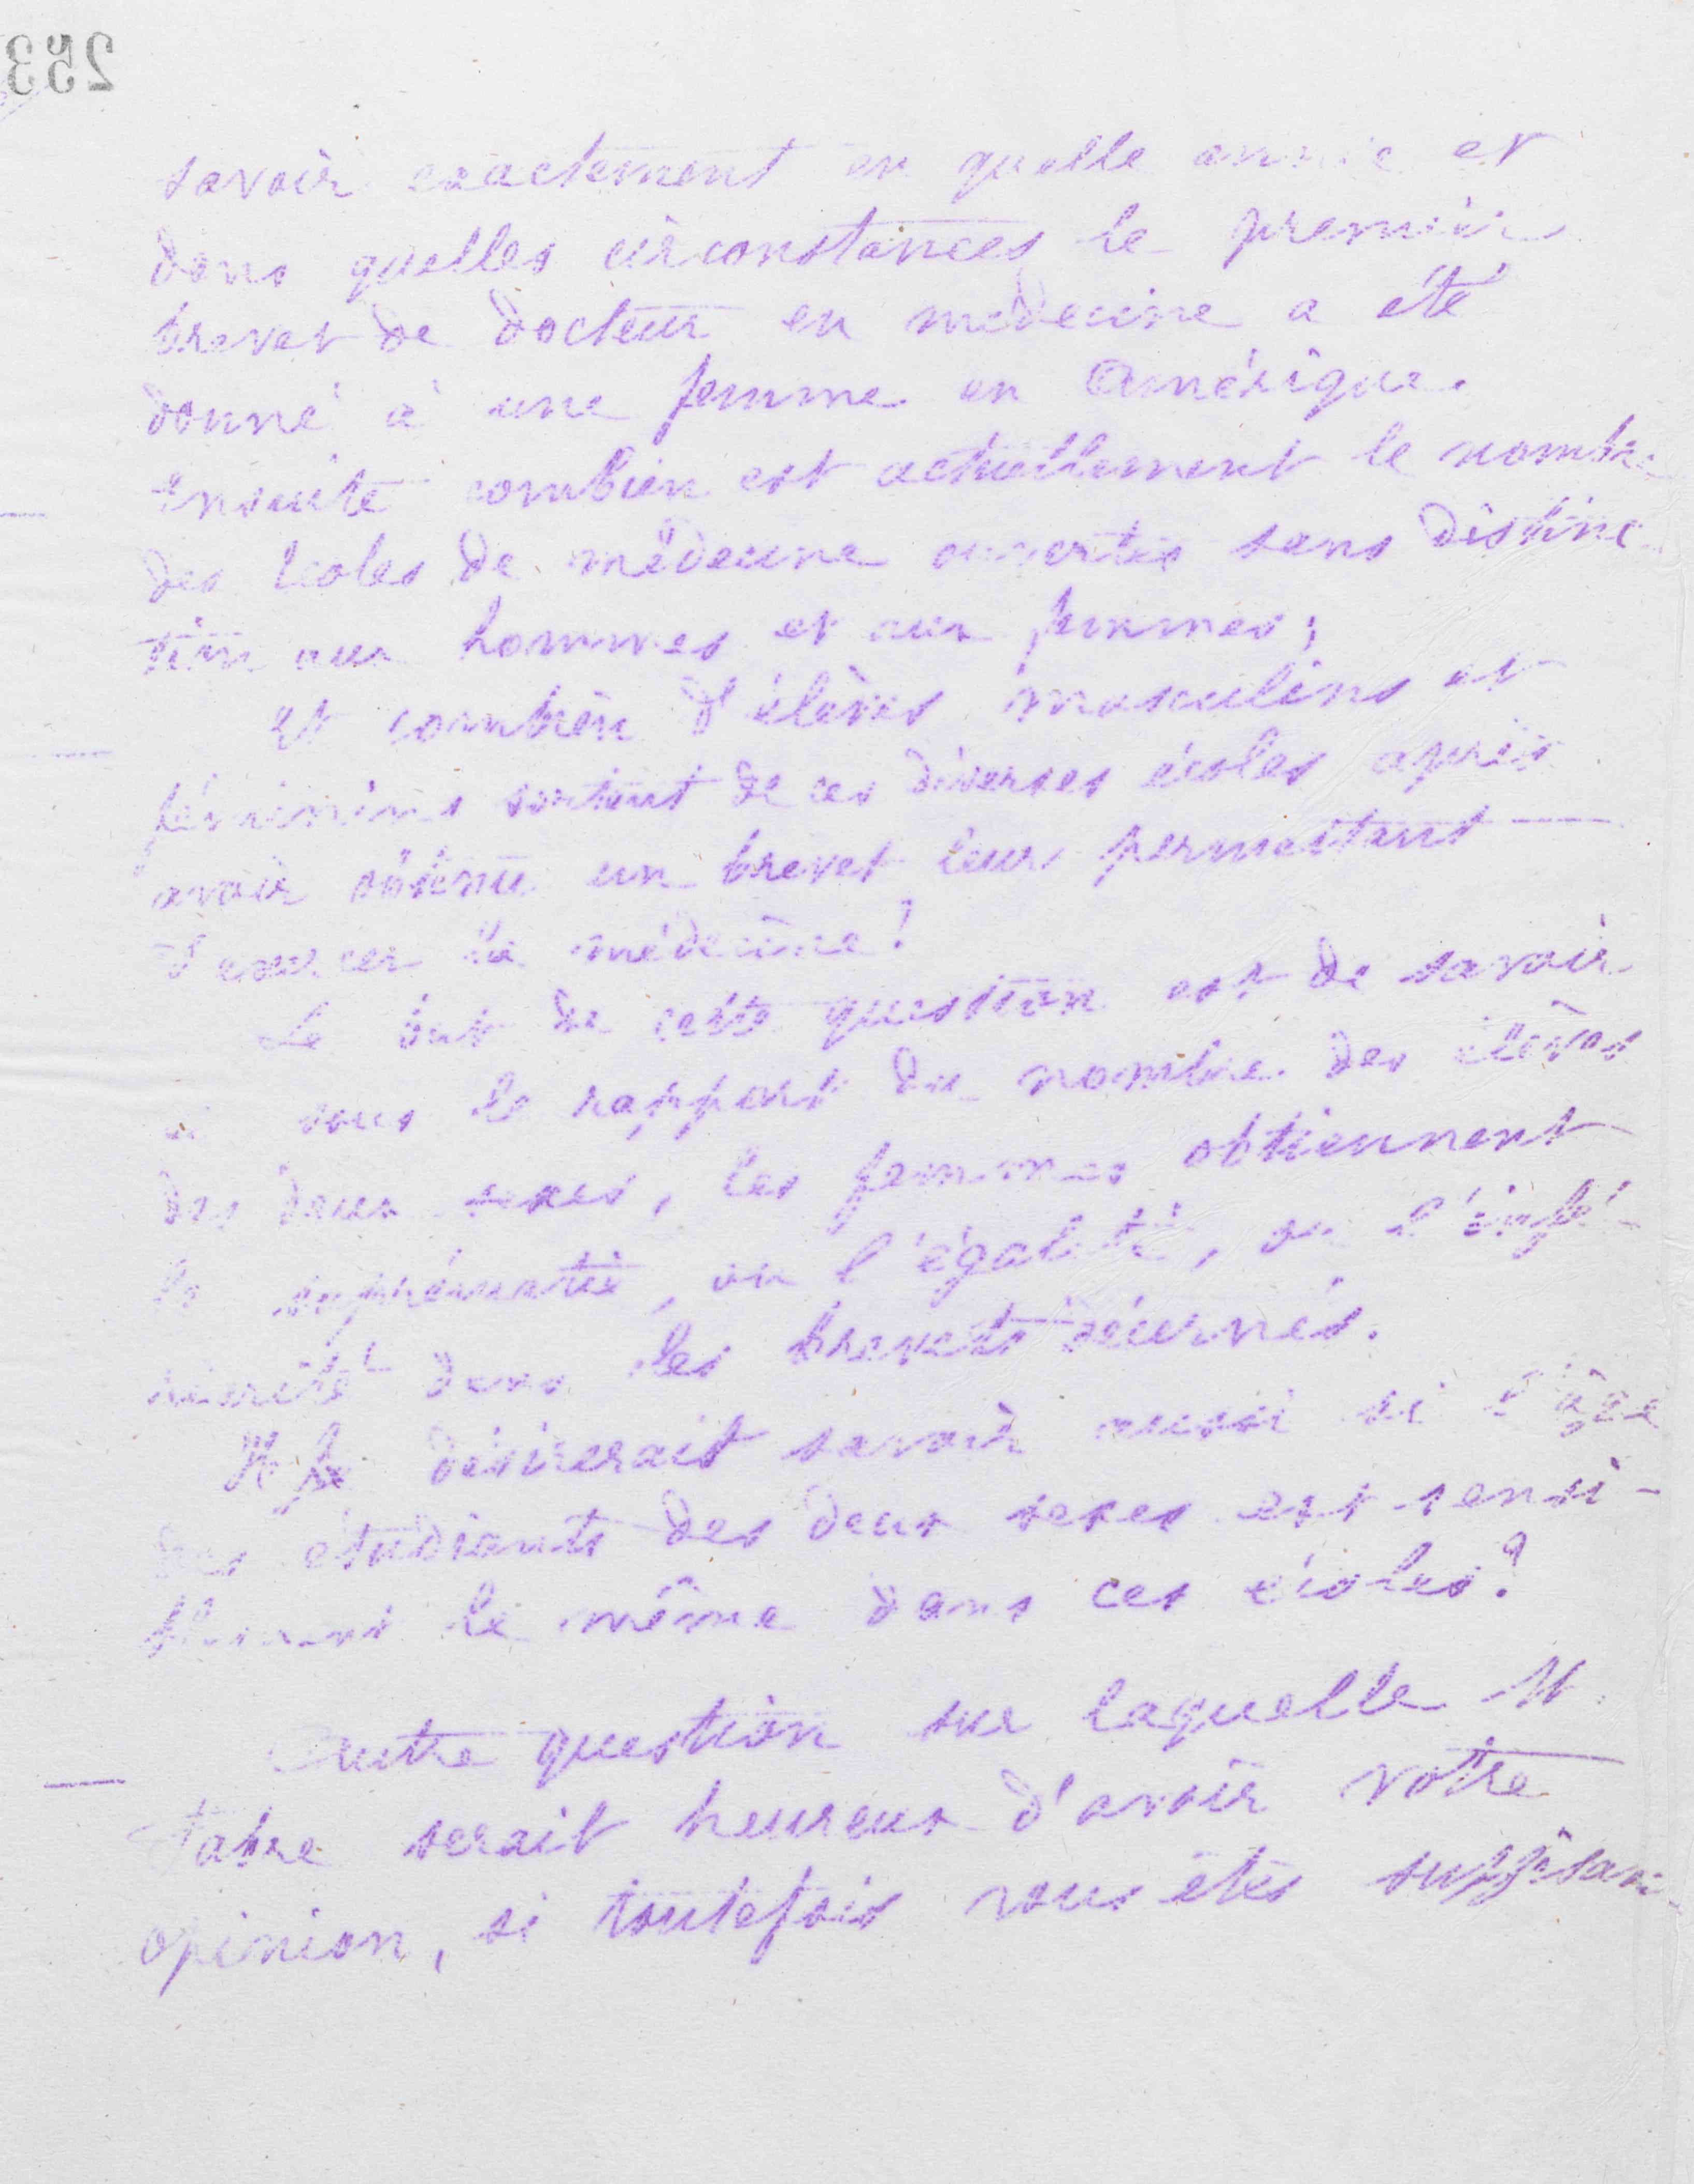 253
savoir exactement en quelle année et
dans quelles circonstances le premier
brevet de docteur en médecine a été
donné à une femme en Amérique.
ensuite combien est actuellement le nombre
des écoles de médecine ouvertes sans distinc-
tion aux hommes et aux femmes;
et combien d'élèves masculins et
féminins sortent de ces diverses écoles après
avoir obtenu un brevet leur permettant
d'exercer la médecine!
Le but de cette question est de savoir
si sous le rapport du nombre des élèves
des deux sexes, les femmes obtiennent
la suprématie, ou l'égalité, ou l'infé-
riorité dans les brevets décernés.
M. désirerait savoir aussi si l'âge
des étudiants des deux sexes est sensi-
blement le même dans ces écoles?
Autre question sur laquelle M.
Fabre serait heureux d'avoir votre
opinion, si toutefois vous êtes